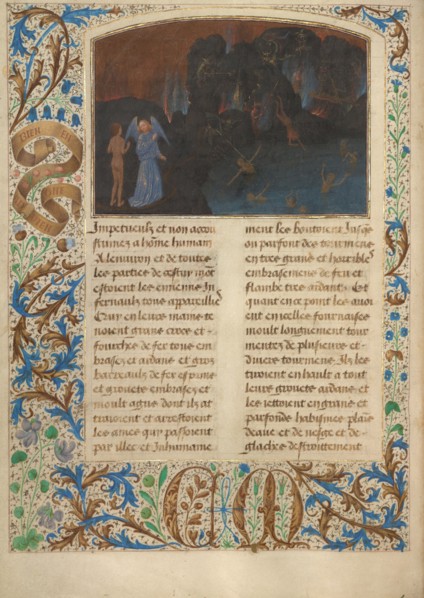 Impetueulx et non accou
stumez a home humain
A lenuiron et de toutes
les parties de cestui mot
estoient les ennemis In
fernaulx tous appareillies
Qui en leurs mains te
noient grans crocz et
fourches de fer tous em
brasez et ardans et gros
barreaulx de fer espine
et grouetz embrasez et
moult agus dont ilz at
traioient et arrestoient
les ames qui passoient
par illec et Inhumaine
ment les boutoient Jusqes
ou parfont des tourmens
entre grans et horribles
embrasemens de feu et
flambe tres ardant Et
quant en ce point les auoi
ent en celle fournaise
moult longuement tour
mentes de plusieurs et
diuers tourmens Ilz les
tiroient en hault a tout
leurs grouetz ardans et
les iettoient en grans et
parfons habismes plains
deaue et de neige et de
glaches destroittement
BIEN EN
CM